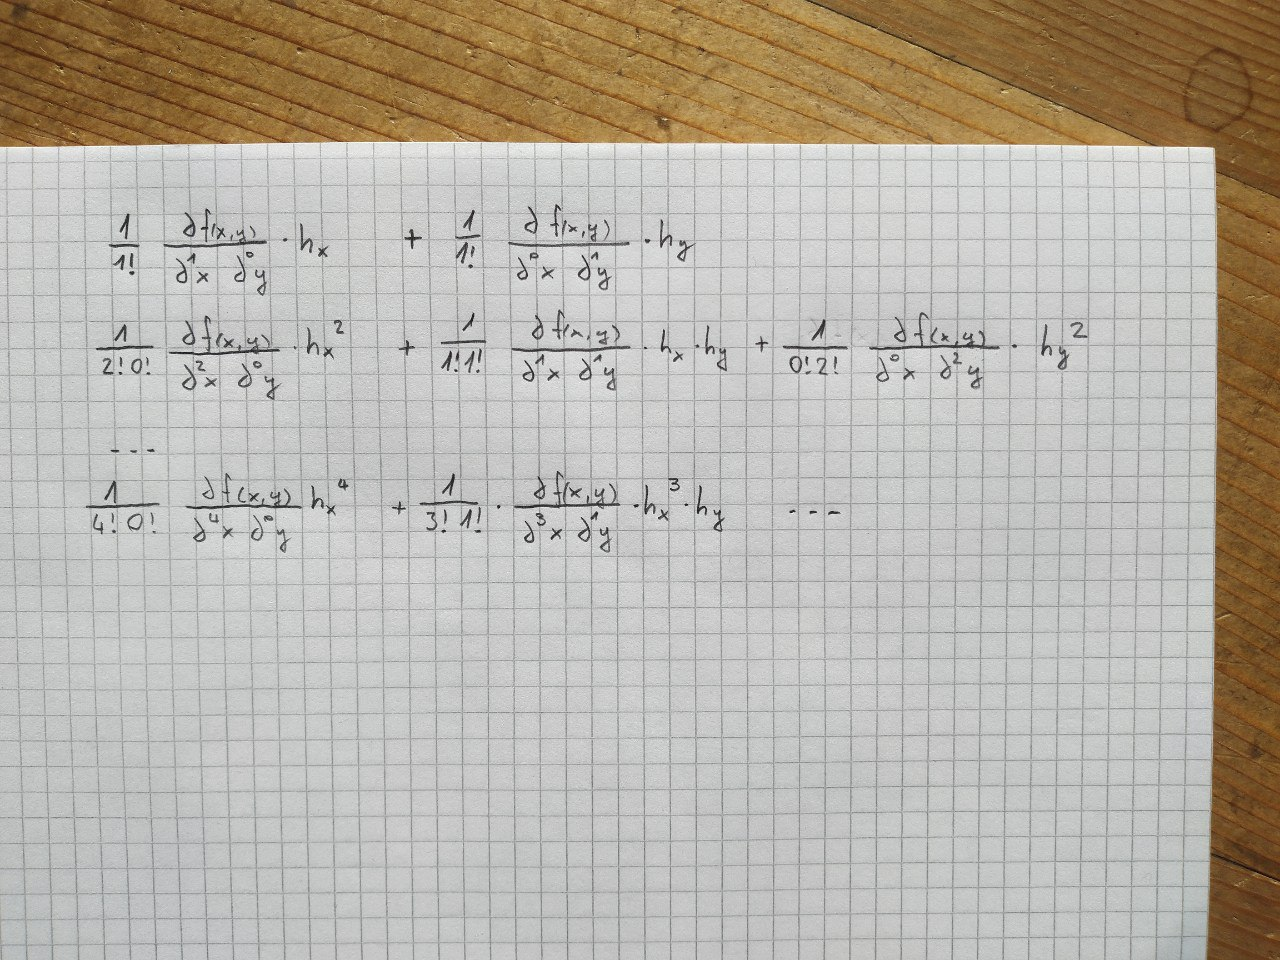 1/1! ∂f(x,y)/∂¹x ∂⁰y · hₓ + 1/1! ∂f(x,y)/∂⁰x ∂¹y · h_y
1/2!0! ∂f(x,y)/∂²x ∂⁰y · hₓ² + 1/1!1! ∂f(x,y)/∂¹x ∂¹y · hₓ · h_y + 1/0!2! ∂f(x,y)/∂⁰x ∂²y · h_y²
---
1/4!0! ∂f(x,y)/∂⁴x ∂⁰y hₓ⁴ + 1/3!1! · ∂f(x,y)/∂³x ∂¹y · hₓ³ · h_y ---